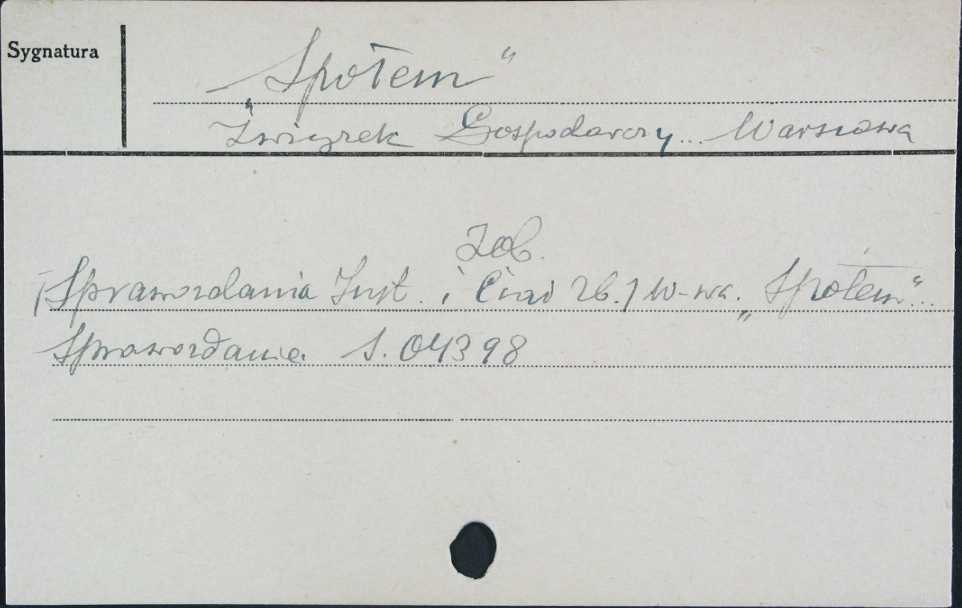 Sygnatura
„Społem”
Związek Gospodarczy Warszawa
Zob.
/Sprawozdania Inst. i Ciał Zb./ W-wa. „Społem”
Sprawozdanie S. 04398